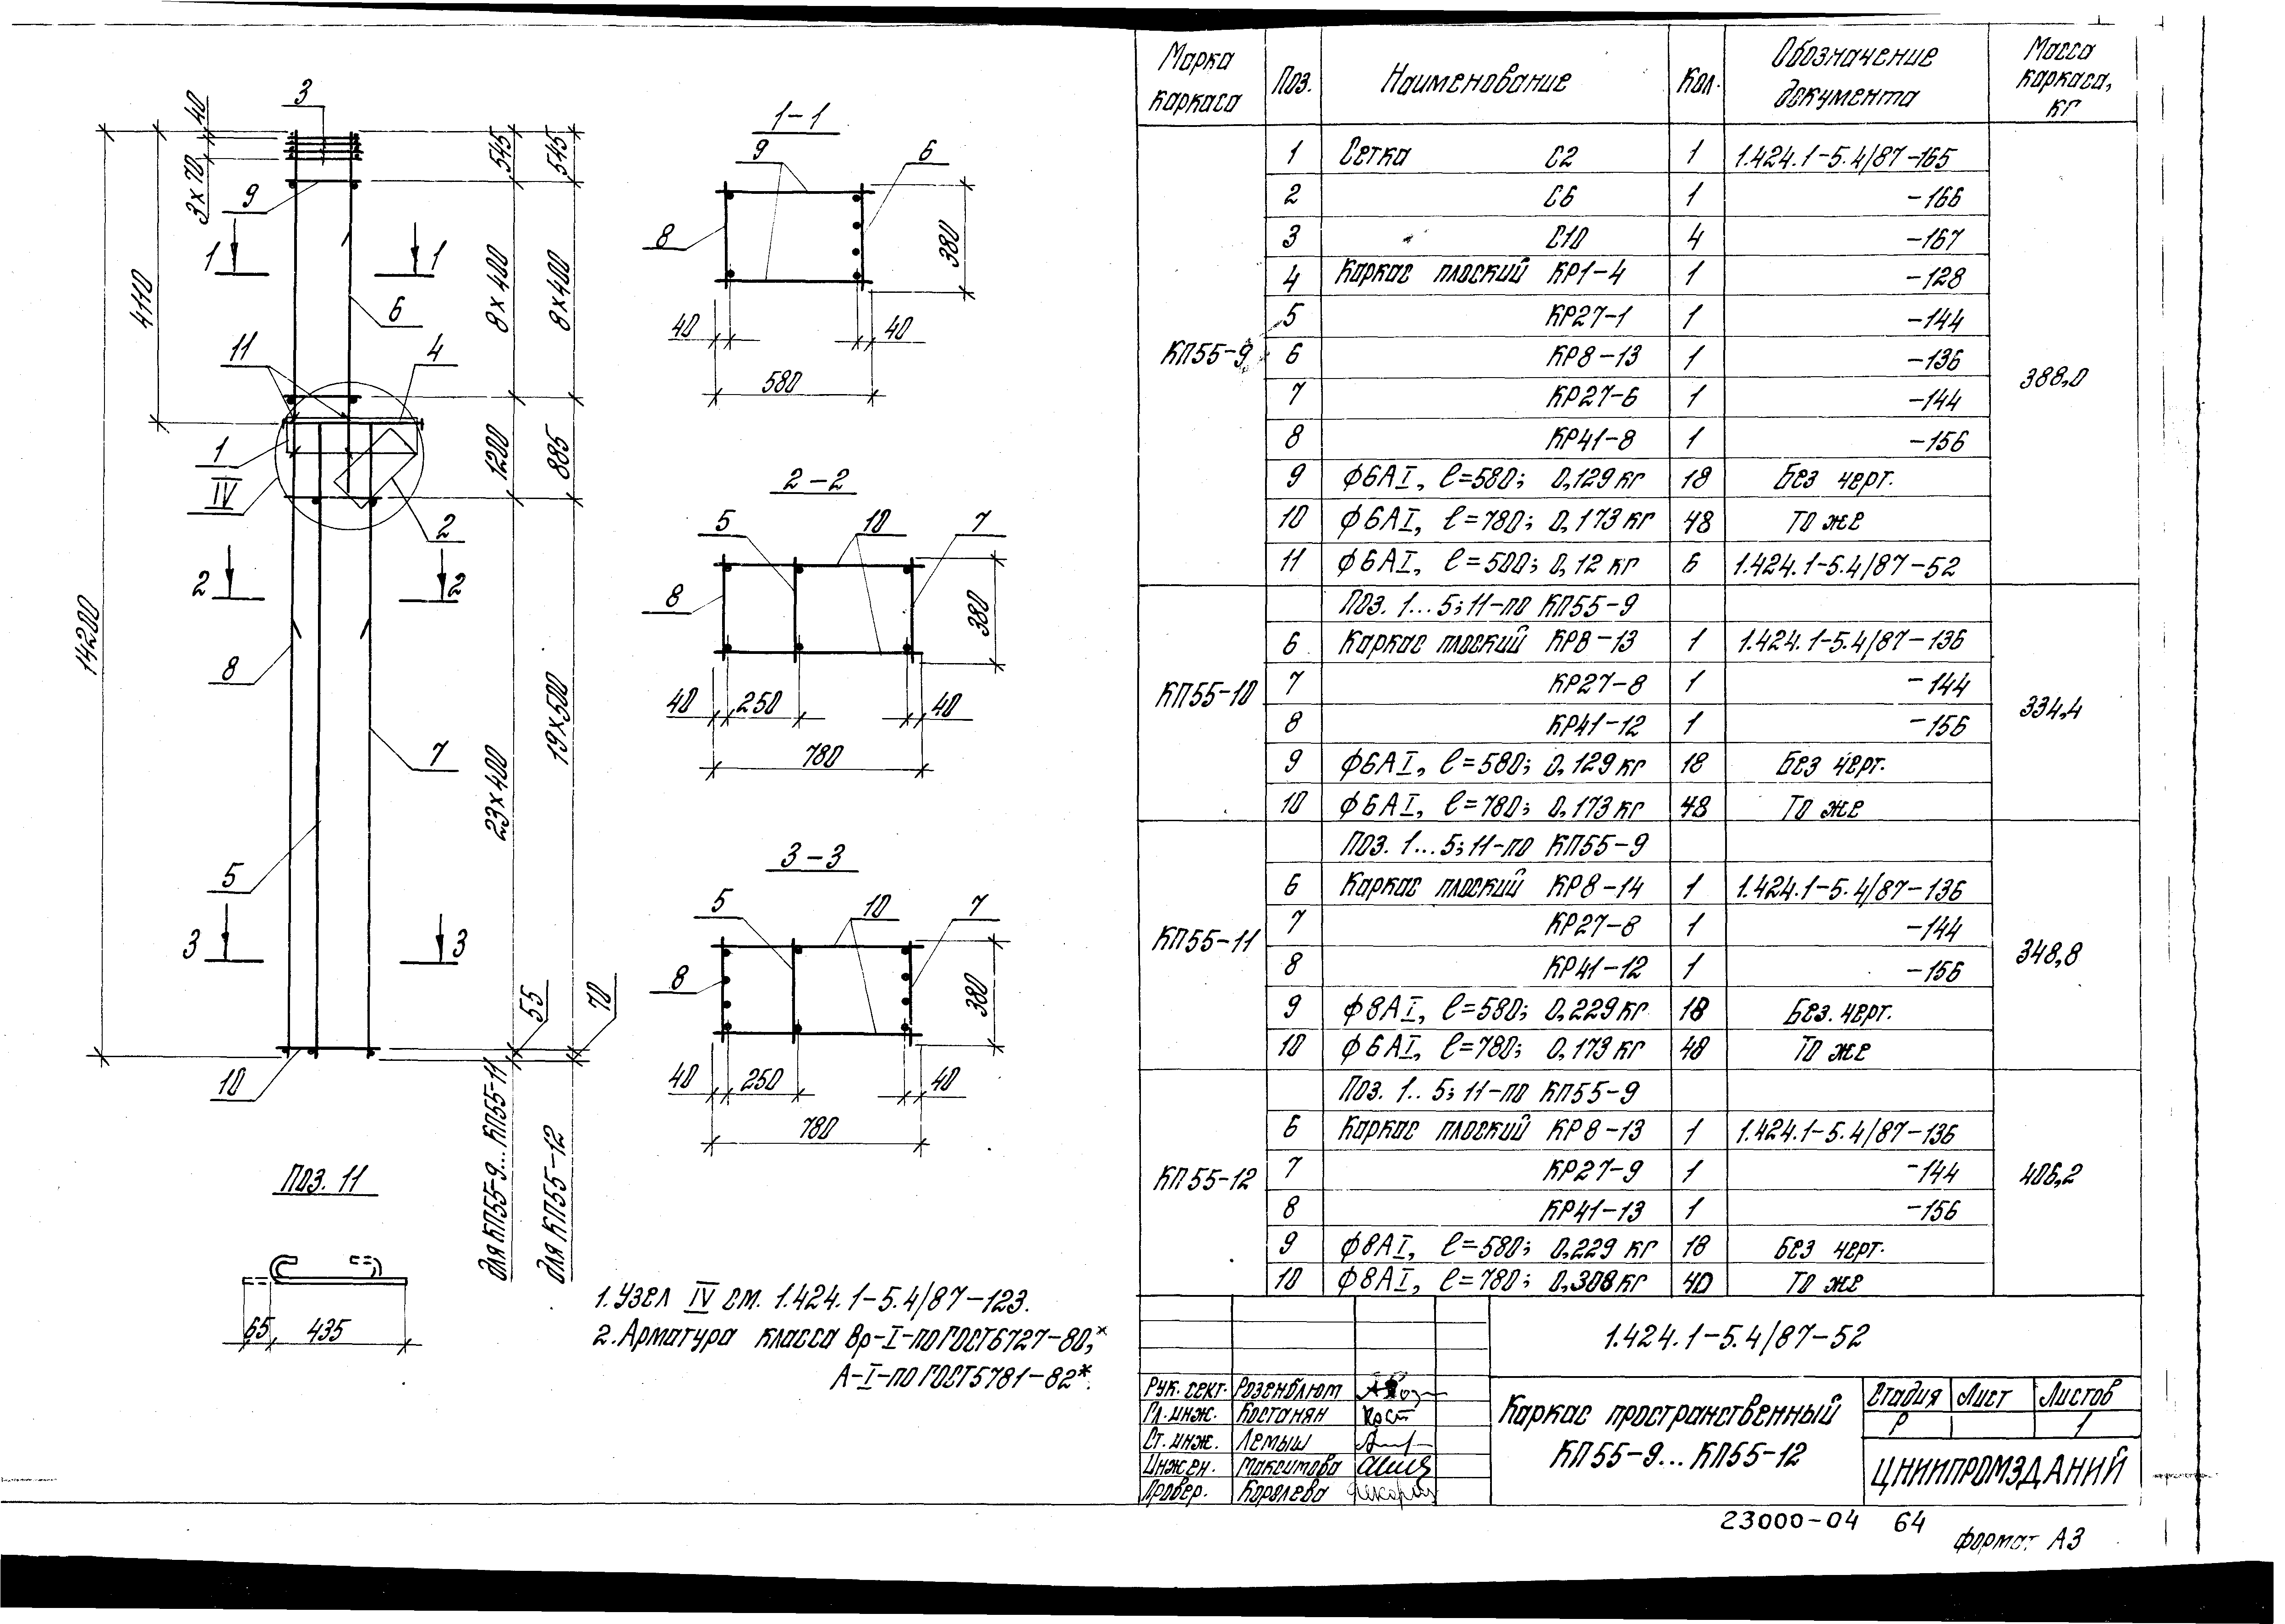 3
40
3×70
9
1
1
4110
545
545
8×400
8×400
6
11
4
1
IV
2
1200
885
2
2
14200
8
7
19×500
23×400
5
3
3
55
70
10
для КП55-9... КП55-11
для КП55-12
Поз. 11
65
435
1-1
9
6
8
380
40
40
580
2-2
5
10
7
8
380
40
250
40
780
3-3
5
10
7
8
380
40
250
40
780
1. Узел IV см. 1.424.1-5.4/87-123.
2. Арматура класса Вр-I-по ГОСТ 6727-80,*
А-I-по ГОСТ 5781-82*.
Марка каркаса Поз. Наименование Кол. Обозначение документа Масса каркаса, кг
КП55-9 388,0
1 Сетка С2 1 1.424.1-5.4/87-165
2 С6 1 -166
3 С10 4 -167
4 Каркас плоский КР1-4 1 -128
5 КР27-1 1 -144
6 КР8-13 1 -136
7 КР27-6 1 -144
8 КР41-8 1 -156
9 ϕ6АI, ℓ=580; 0,129кг 18 Без черт.
10 ϕ6АI, ℓ=780; 0,173кг 48 То же
11 ϕ6АI, ℓ=500; 0,12кг 6 1.424.1-5.4/87-52
КП55-10 334,4
Поз. 1...5; 11-по КП55-9
6 Каркас плоский КР8-13 1 1.424.1-5.4/87-136
7 КР27-8 1 -144
8 КР41-12 1 -156
9 ϕ6АI, ℓ=580; 0,129кг 18 Без черт.
10 ϕ6АI, ℓ=780; 0,173кг 48 То же
КП55-11 348,8
Поз. 1...5; 11-по КП55-9
6 Каркас плоский КР8-14 1 1.424.1-5.4/87-136
7 КР27-8 1 -144
8 КР41-12 1 -156
9 ϕ8АI, ℓ=580; 0,229кг 18 Без. черт.
10 ϕ6АI, ℓ=780; 0,173кг 48 То же
КП55-12 406,2
Поз. 1..5; 11-по КП55-9
6 Каркас плоский КР8-13 1 1.424.1-5.4/87-136
7 КР27-9 1 -144
8 КР41-13 1 -156
9 ϕ8АI, ℓ=580; 0,229кг 18 Без черт.
10 ϕ8АI, ℓ=780; 0,308кг 40 То же
1.424.1-5.4/87-52
Рук. сект. Розенблюм
Гл. инж. Костанян
Ст. инж. Лемыш
Инжен. Максимова
Провер. Королева
Каркас пространственный
КП55-9... КП55-12
Стадия Лист Листов
Р 1
ЦНИИПРОМЗДАНИЙ
23000-04 64
Формат А3